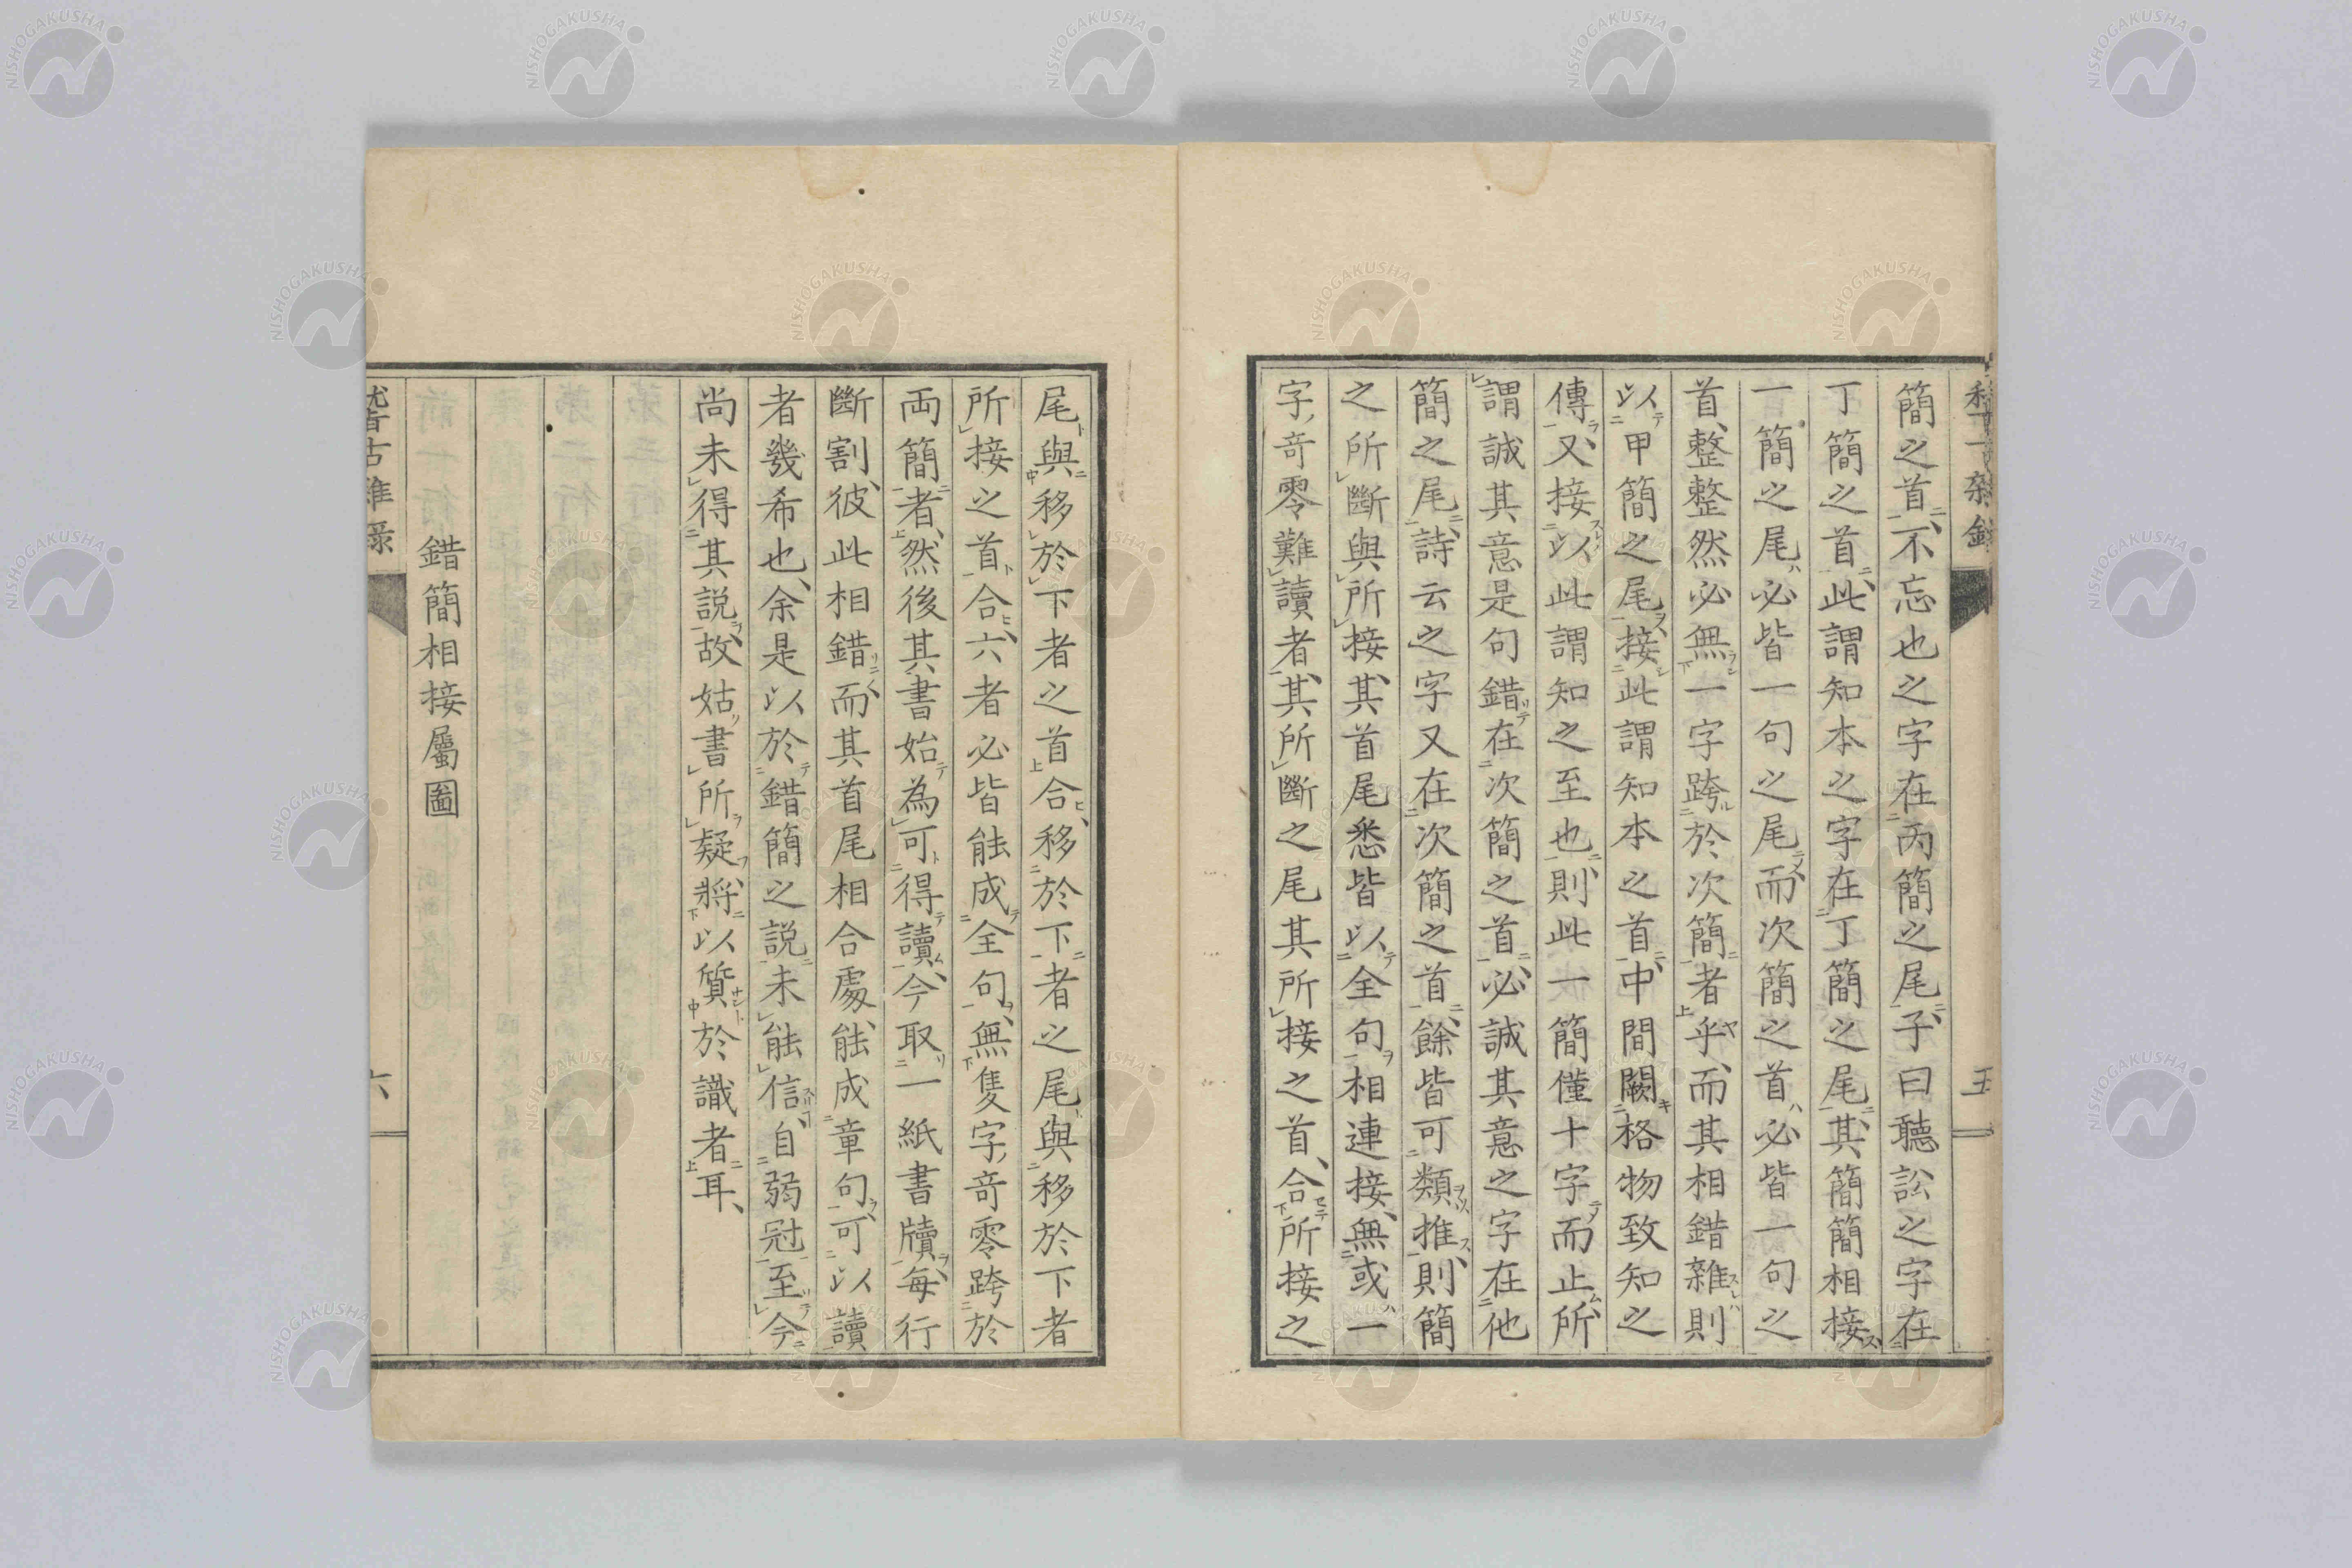 簡之首不忘也之字在丙簡之尾子曰聽訟之字在
丁簡之首此謂知本之字在丁簡之尾其簡簡相接
一簡之尾必皆一句之尾而次簡之首必皆一句之
首整整然必無一字跨於次簡者乎而其相錯雜則
以甲簡之尾接此謂知本之首中間闕格物致知之
傳又接以此謂知之至也則此一簡僅十字而止所
謂誠其意是句錯在次簡之首必誠其意之字在他
簡之尾詩云之字又在次簡之首餘皆可類推則簡
之所斷與所接其首尾悉皆以全句相連接無或一
字奇零難讀者其所斷之尾其所接之首合所接之
五
尾與移於下者之首合移於下者之尾與移於下者
所接之首合六者必皆能成全句無隻字奇零跨於
両簡者然後其書始為可得讀今取一紙書牘每行
斷割彼此相錯而其首尾相合處能成章句可以讀
者幾希也余是以於錯簡之説未能信自弱冠至今
尚未得其説故姑書所疑將以質於識者耳
錯簡相接屬圖
六
NISHOGAKUSHA